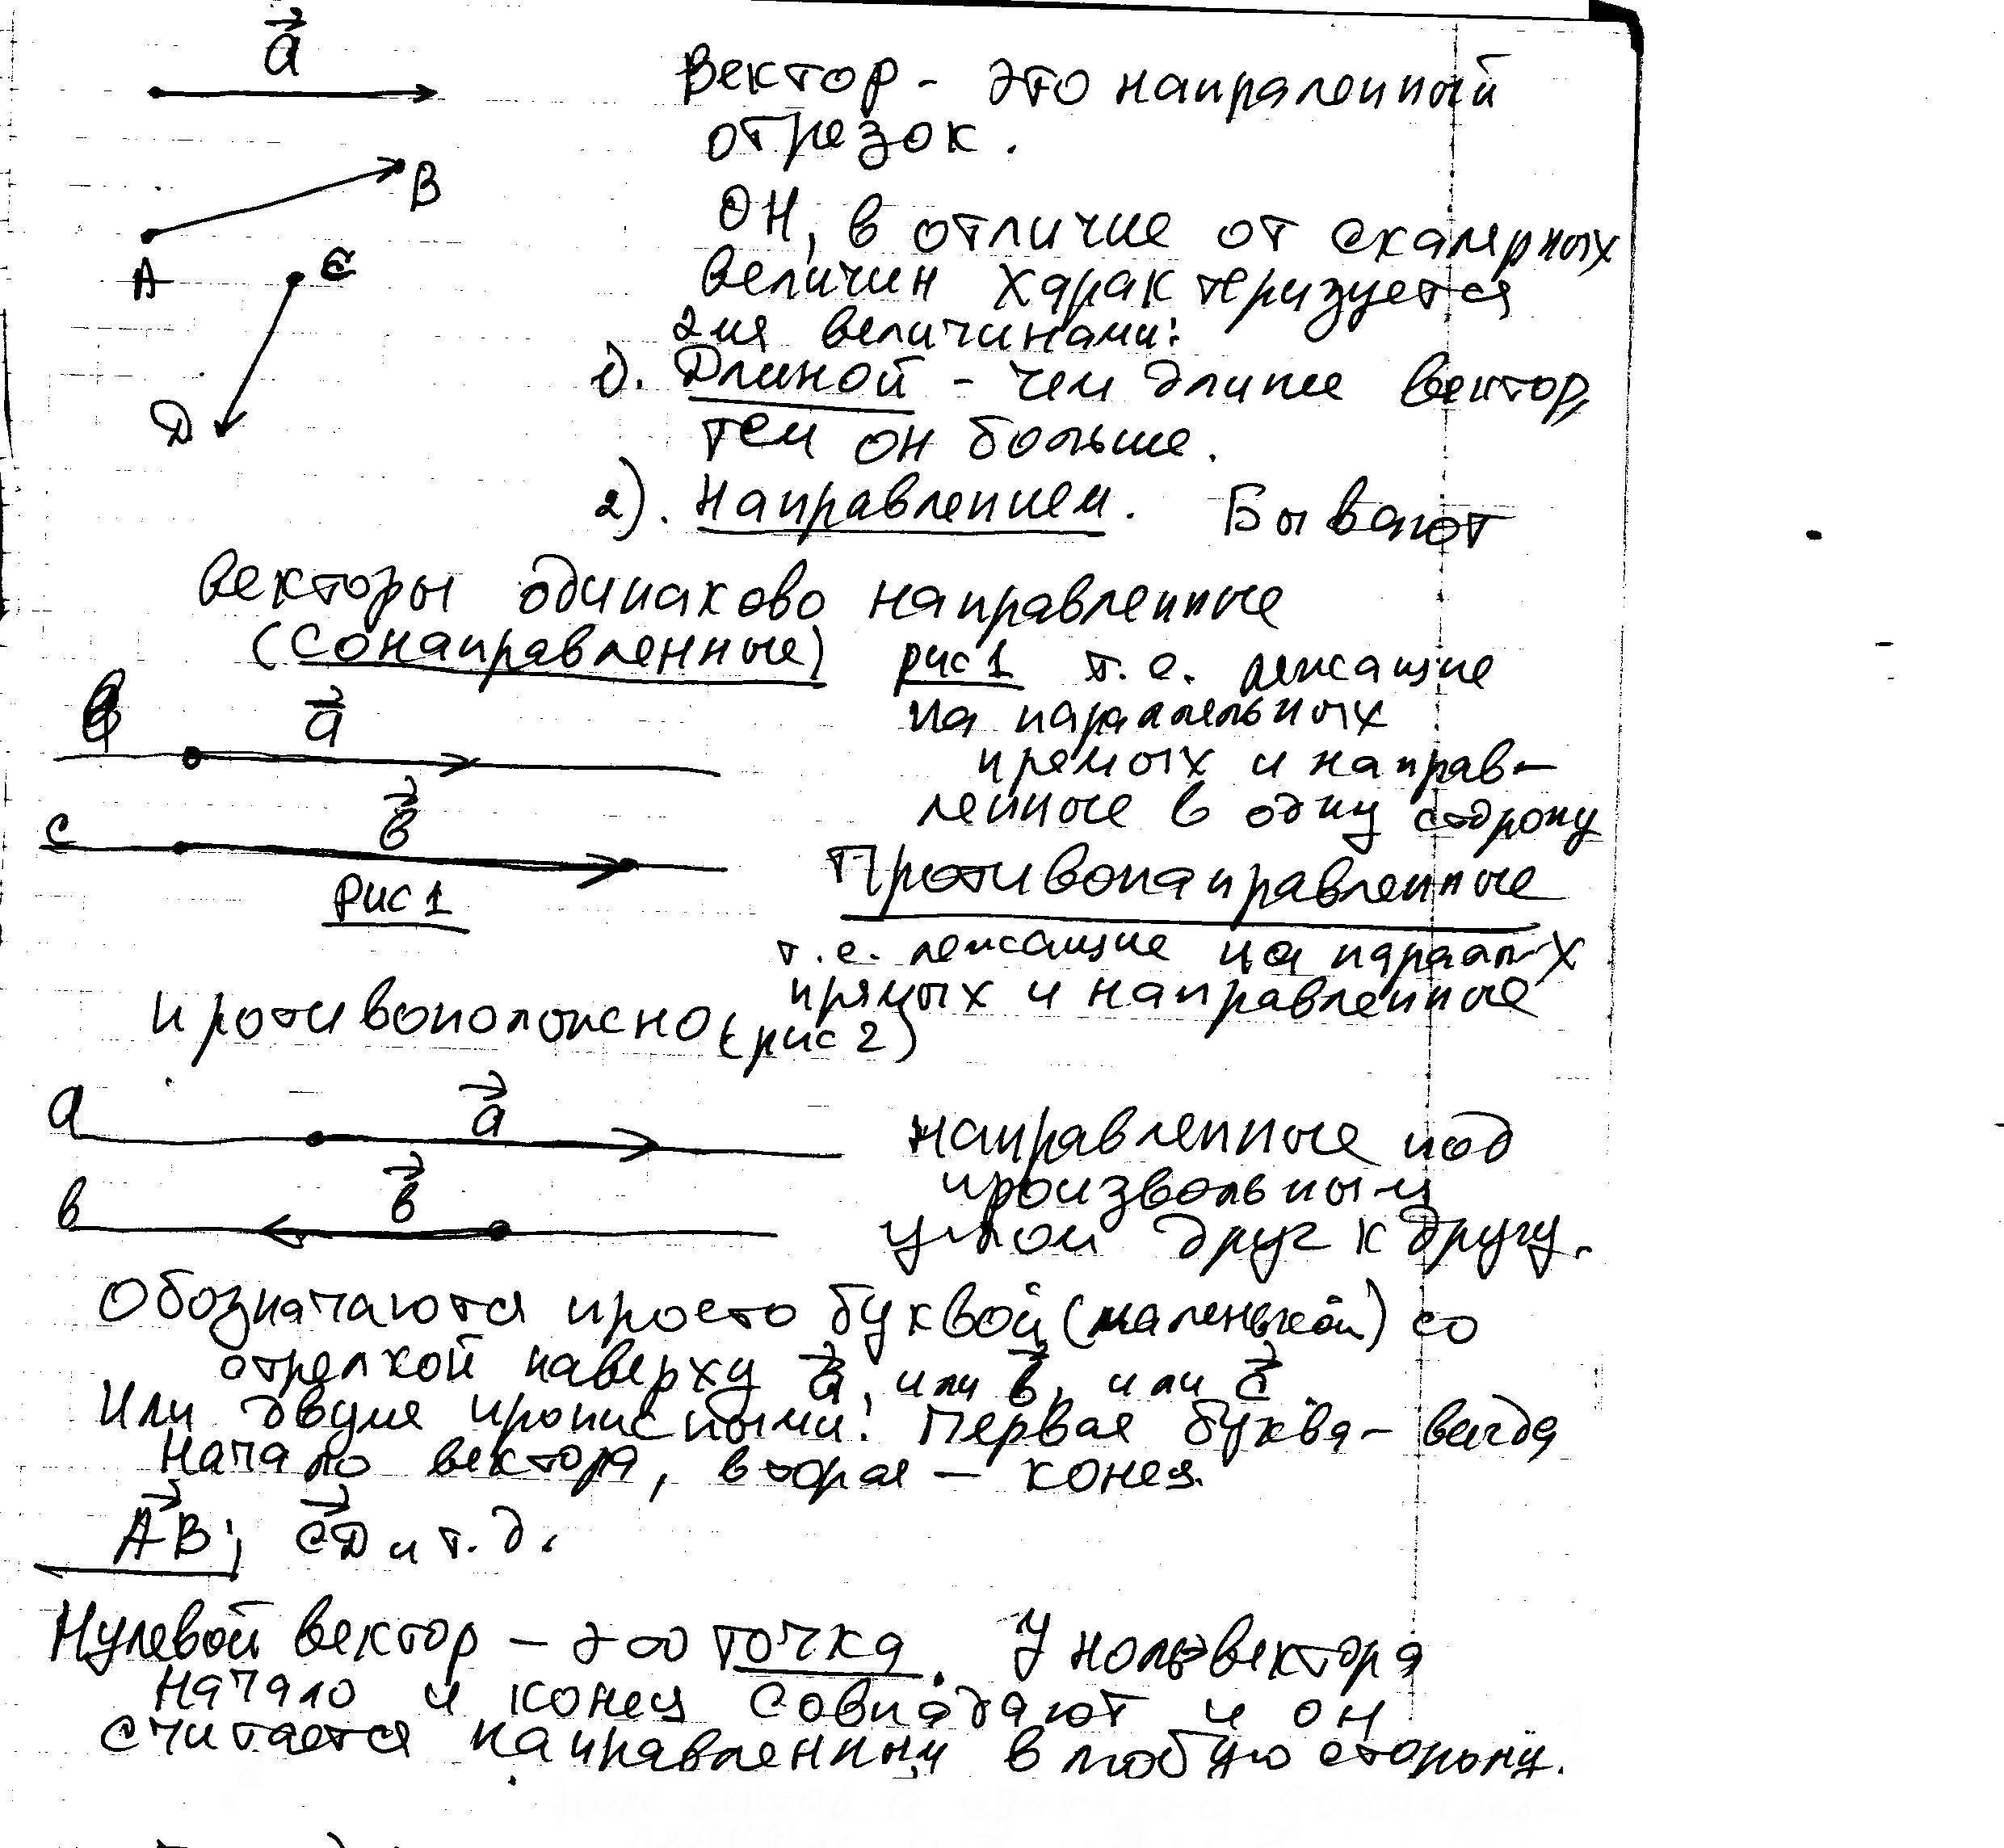 a⃗
Вектор - это напраленный
отрезок.
B
A
C
D
Он, в отличие от скалярных
величин характеризуется
2мя величинами:
1). Длиной - чем длинее вектор,
тем он больше.
2). Направлением. Бывают
векторы одинаково направленные
(Сонаправленные) рис 1 т.е. лежащие
на параллельных
прямых и направ-
ленные в одну сторону
a⃗
c
в⃗
Рис 1
Противонаправленные
т.е. лежащие на паралл-х
прямых и направленные
противоположно (рис 2)
a
a⃗
в
в⃗
направленные под
произвольным
углом друг к другу.
Обозначаются просто буквой (маленькой) со
стрелкой наверху a⃗, или в⃗, или c⃗
Или двумя прописными! Первая буква - всегда
начало вектора, вторая - конец.
AB⃗; CD⃗ и т.д.
Нулевой вектор - это точка. У ноль-вектора
начало и конец совпадают и он
считается направленным в любую сторону.